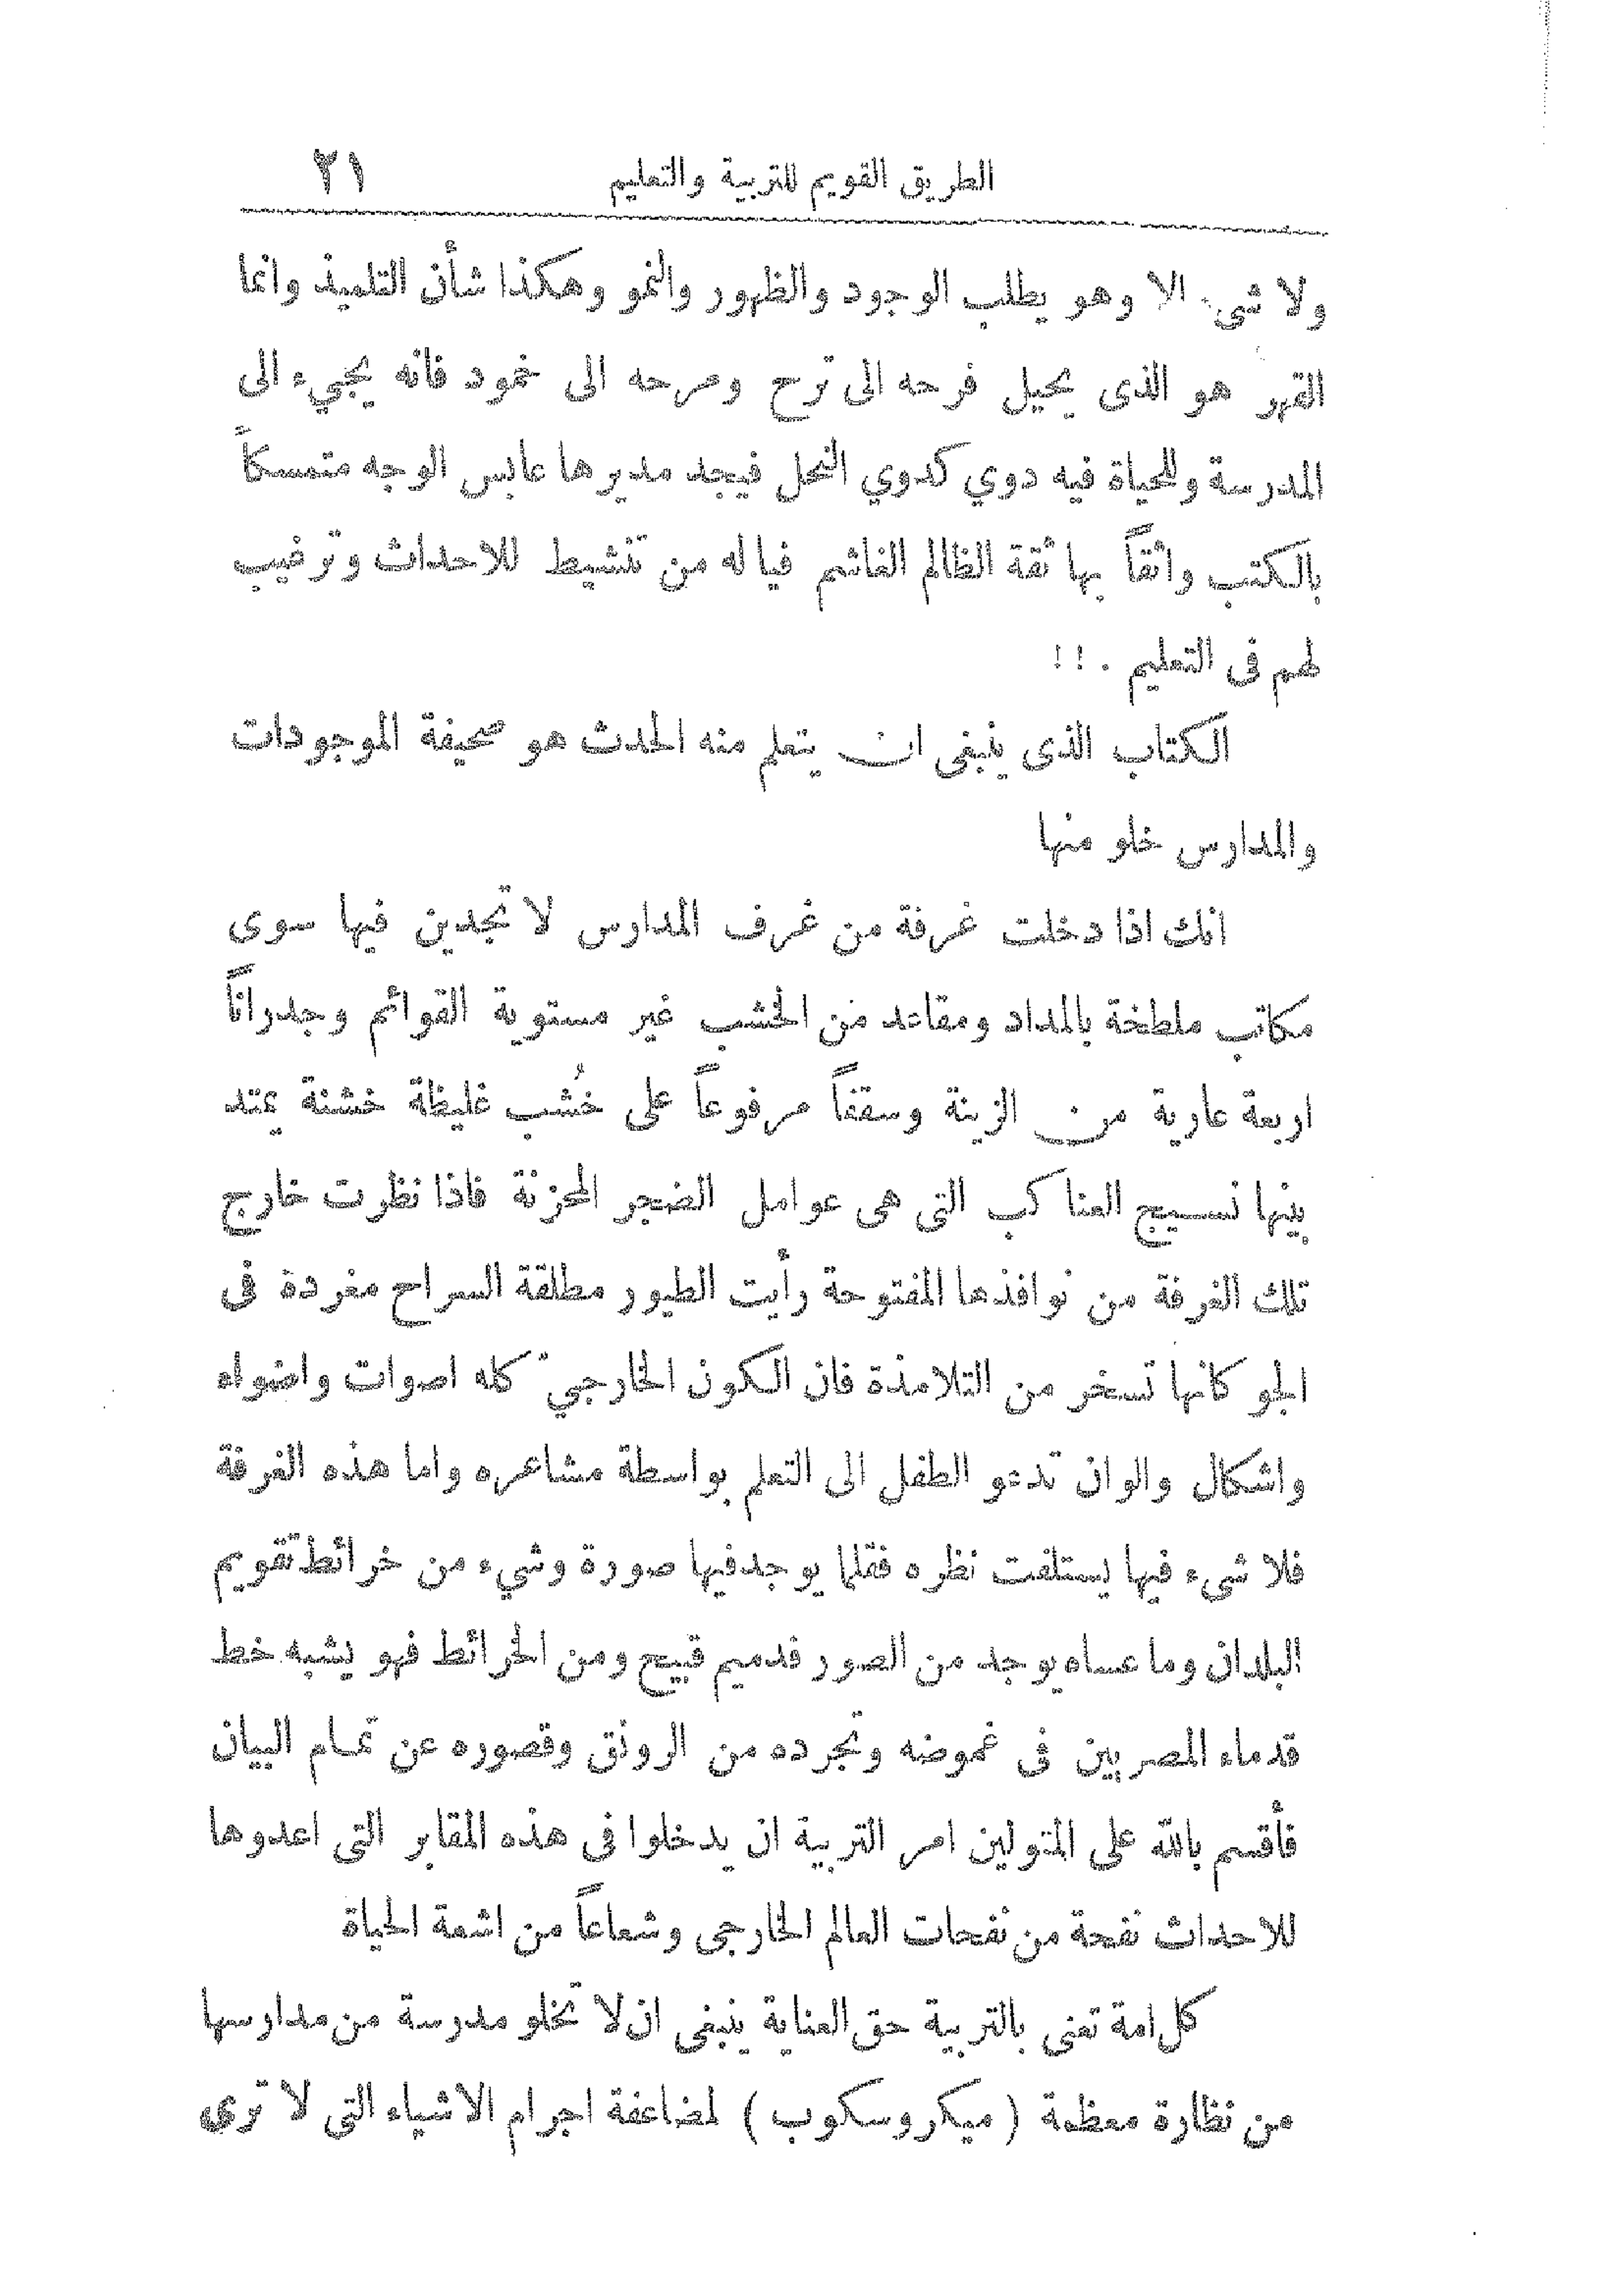 الطريق القويم للتربية والتعليم ٢١
ولا شيء الا وهو يطلب الوجود والظهور والنمو وهكذا شأن التلميذ وانما
القهر هو الذى يحيل فرحه الى ترح ومرحه الى خمود فانه يجيء الى
المدرسة وللحياة فيه دوي كدوي النحل فيجد مديرها عابس الوجه متمسكاً
بالكتب واثقاً بها ثقة الظالم الغاشم فيا له من تنشيط للاحداث وترغيب
لهم فى التعليم . ! !
الكتاب الذى ينبغى ان يتعلم منه الحدث هو صحيفة الموجودات
والمدارس خلو منها
انك اذا دخلت غرفة من غرف المدارس لا تجدين فيها سوى
مكاتب ملطخة بالمداد ومقاعد من الخشب غير مستوية القوائم وجدراناً
اربعة عارية من الزينة وسقفاً مرفوعاً على خُشب غليظة خشنة يمتد
بينها نسيج العناكب التى هى عوامل الضجر المحزنة فاذا نظرت خارج
تلك الغرفة من نوافذها المفتوحة رأيت الطيور مطلقة السراح مغردة فى
الجو كانها تسخر من التلامذة فان الكون الخارجي كله اصوات واضواء
واشكال والوان تدعو الطفل الى التعلم بواسطة مشاعره واما هذه الغرفة
فلا شىء فيها يستلفت نظره فقلما يوجد فيها صورة وشيء من خرائط تقويم
البلدان وما عساه يوجد من الصور فدميم قبيح ومن الخرائط فهو يشبه خط
قدماء المصريين فى غموضه وتجرده من الرونق وقصوره عن تمام البيان
فأقسم بالله على المتولين امر التربية ان يدخلوا فى هذه المقابر التى اعدوها
للاحداث نفحة من نفحات العالم الخارجى وشعاعاً من اشعة الحياة
كل امة تعنى بالتربية حق العناية ينبغى ان لا تخلو مدرسة من مدارسها
من نظارة معظمة ( ميكروسكوب ) لمضاعفة اجرام الاشياء التى لا ترى